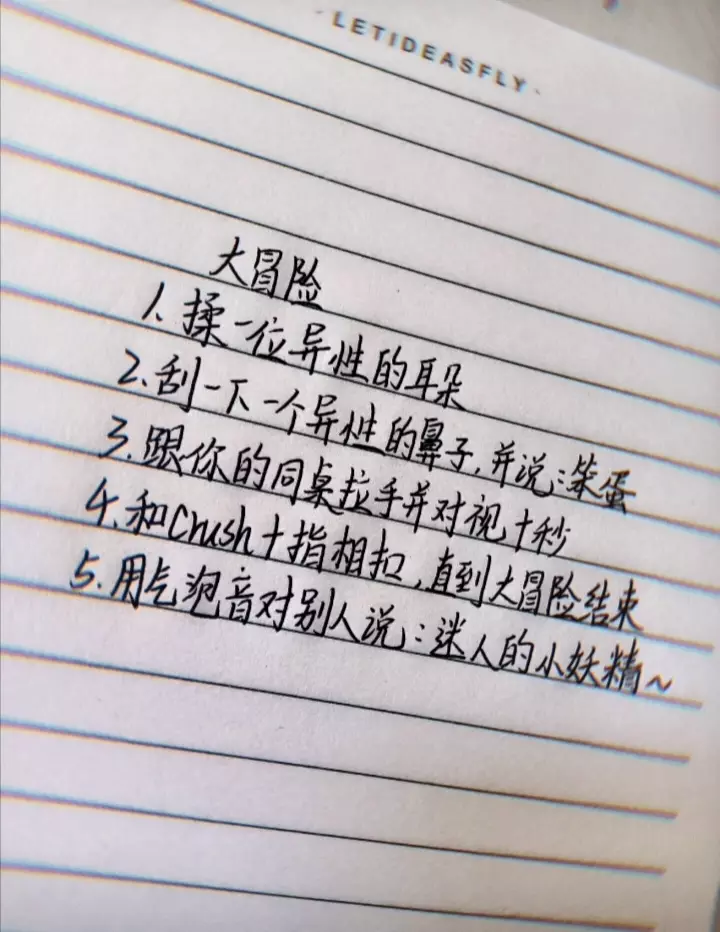 ·LETIDEASFLY·
大冒险
1、揉一位异性的耳朵
2、刮一下一个异性的鼻子,并说:笨蛋
3、跟你的同桌拉手并对视十秒
4、和crush十指相扣,直到大冒险结束
5、用气泡音对别人说:迷人的小妖精~